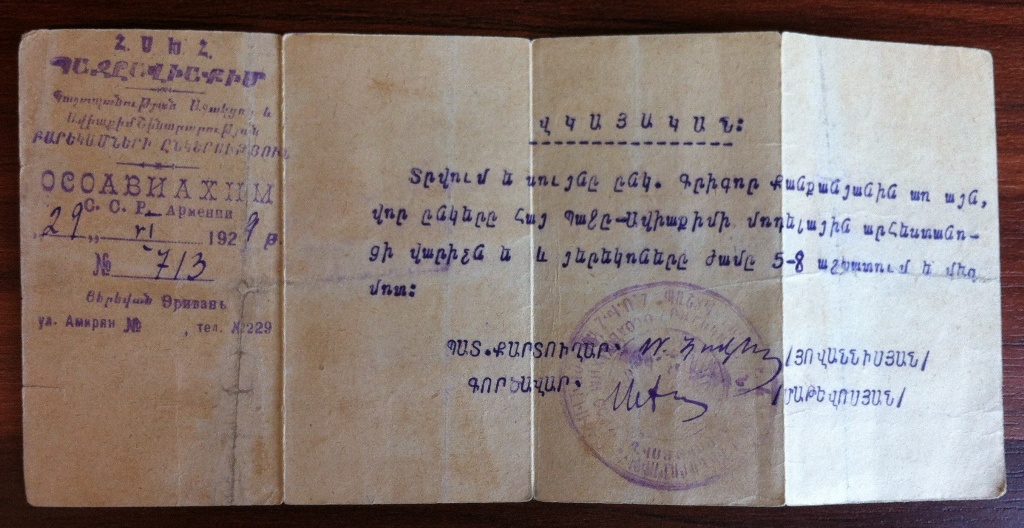 Հ. Ս. Խ. Հ.
ՊԱՇՔԸԱՎԻԱՔԻՄ
Պաշտպանության Աջակցող և
Ավիաքիմ Շինարարության
ԲԱՐԵԿԱՄՆԵՐԻ ԸՆԿԵՐՈՒԹՅՈՒՆ
ОСОАВИАХИМ
С. С. Р. Армении
„29„ VI 1929 թ.
№ 713
Յերեվան Эривань
ул. Амирян № , тел. №229
ՎԿԱՅԱԿԱՆ:
Տրվում ե սույնը ընկ. Գրիգոր Քանքանյանին առ այն,
վոր ընկերը Հայ Պաշը-Ավիաքիմի մոդելային արհեստանո-
ցի վարիչն ե և յերեկոները ժամը 5-8 աշխատում ե մեզ
մոտ:
ՊԱՏ.ՔԱՐՏՈՒՂԱՐ. /ՅՈՎԱՆՆԻՍՅԱՆ/
ԳՈՐԾԱՎԱՐ. /ՄԱԹԵՎՈՍՅԱՆ/